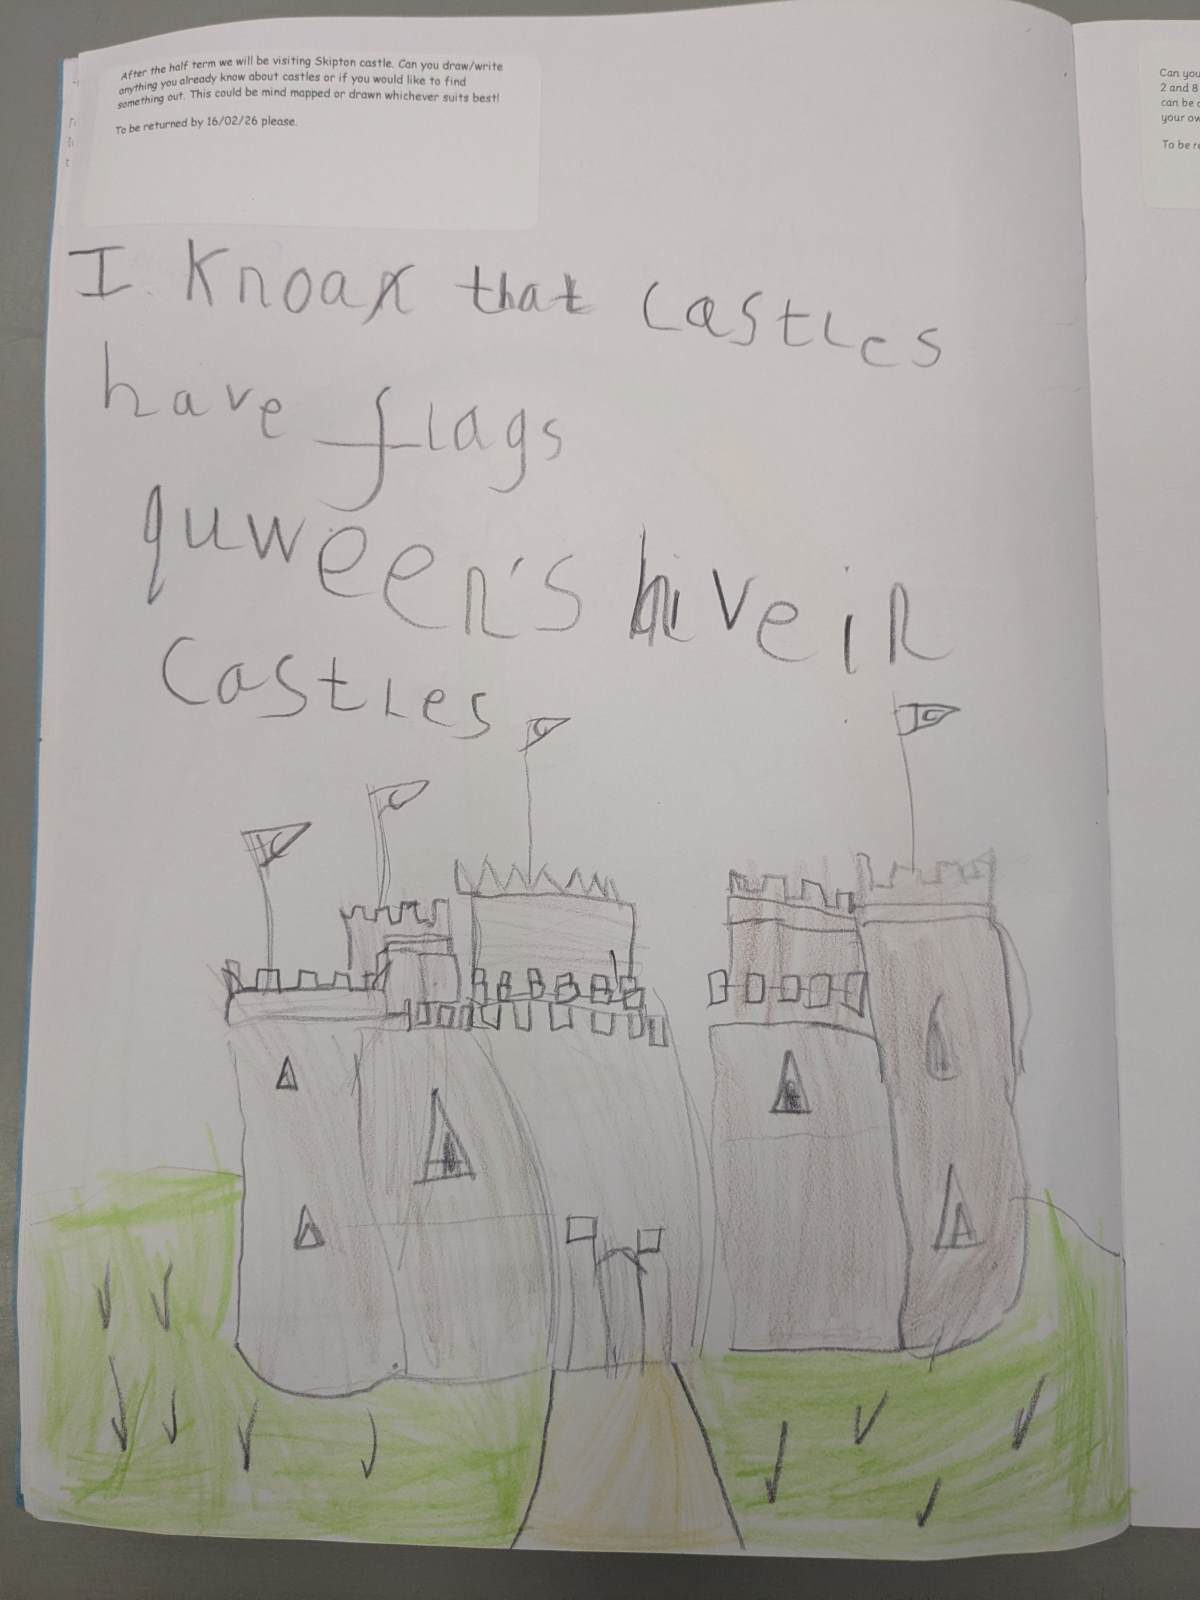 After the half term we will be visiting Skipton castle. Can you draw/write
anything you already know about castles or if you would like to find
something out. This could be mind mapped or drawn whichever suits best!
To be returned by 16/02/26 please.
I know that castles
have flags
quween's live in
castles
Can you
2 and 8
can be
your
To be